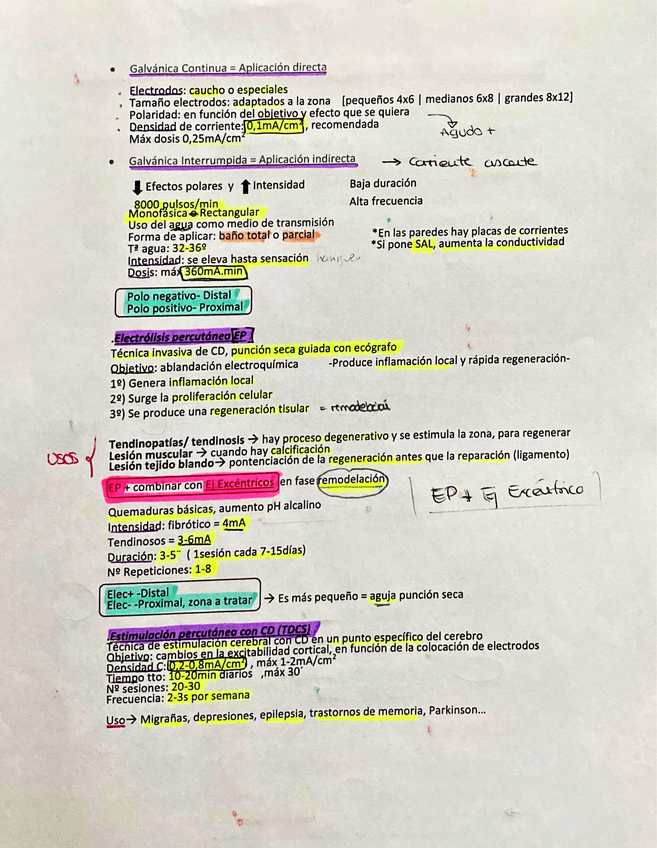 • Galvánica Continua = Aplicación directa
Electrodos: caucho o especiales
Tamaño electrodos: adaptados a la zona [pequeños 4x6 | medianos 6x8 | grandes 8x12]
Polaridad: en función del objetivo y efecto que se quiera
Densidad de corriente: 0,1mA/cm², recomendada
Agudo +
Máx dosis 0,25mA/cm²
• Galvánica Interrumpida = Aplicación indirecta → corriente
⬇ Efectos polares y ⬆ Intensidad Baja duración
8000 pulsos/min Alta frecuencia
Monofásica Rectangular
Uso del agua como medio de transmisión
Forma de aplicar: baño total o parcial *En las paredes hay placas de corrientes
Tª agua: 32-36º *Si pone SAL, aumenta la conductividad
Intensidad: se eleva hasta sensación
Dosis: máx 360mA.min
Polo negativo- Distal
Polo positivo- Proximal
.Electrólisis percutánea EP
Técnica invasiva de CD, punción seca guiada con ecógrafo
Objetivo: ablandación electroquímica -Produce inflamación local y rápida regeneración-
1º) Genera inflamación local
2º) Surge la proliferación celular
3º) Se produce una regeneración tisular = remodelación
USOS {
Tendinopatías/ tendinosis → hay proceso degenerativo y se estimula la zona, para regenerar
Lesión muscular → cuando hay calcificación
Lesión tejido blando → pontenciación de la regeneración antes que la reparación (ligamento)
EP + combinar con Ej.Excéntricos en fase remodelación
EP + Ej Excéntrico
Quemaduras básicas, aumento pH alcalino
Intensidad: fibrótico = 4mA
Tendinosos = 3-6mA
Duración: 3-5¨ ( 1sesión cada 7-15días)
Nº Repeticiones: 1-8
Elec+ -Distal
Elec- -Proximal, zona a tratar → Es más pequeño = aguja punción seca
Estimulación percutánea con CD (TDCS)
Técnica de estimulación cerebral con CD en un punto específico del cerebro
Objetivo: cambios en la excitabilidad cortical, en función de la colocación de electrodos
Densidad C: 0,2-0,8mA/cm² , máx 1-2mA/cm²
Tiempo tto: 10-20min diarios ,máx 30´
Nº sesiones: 20-30
Frecuencia: 2-3s por semana
Uso→ Migrañas, depresiones, epilepsia, trastornos de memoria, Parkinson...